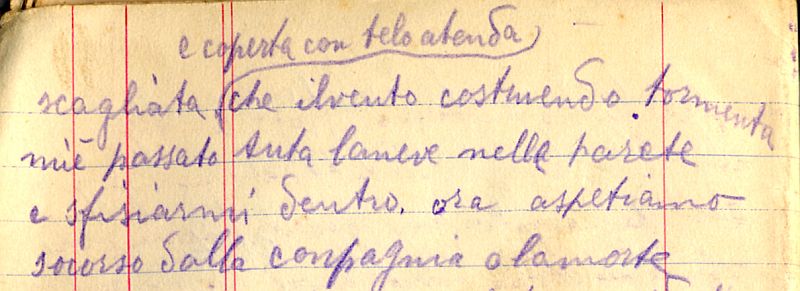 e coperta con telo atenda
scagliata, che ilvento costruendo tormenta
miè passato tuta laneve nelle parete
e sfisiarmi dentro. ora aspetiamo
socorso dalla conpagnia o lamorte